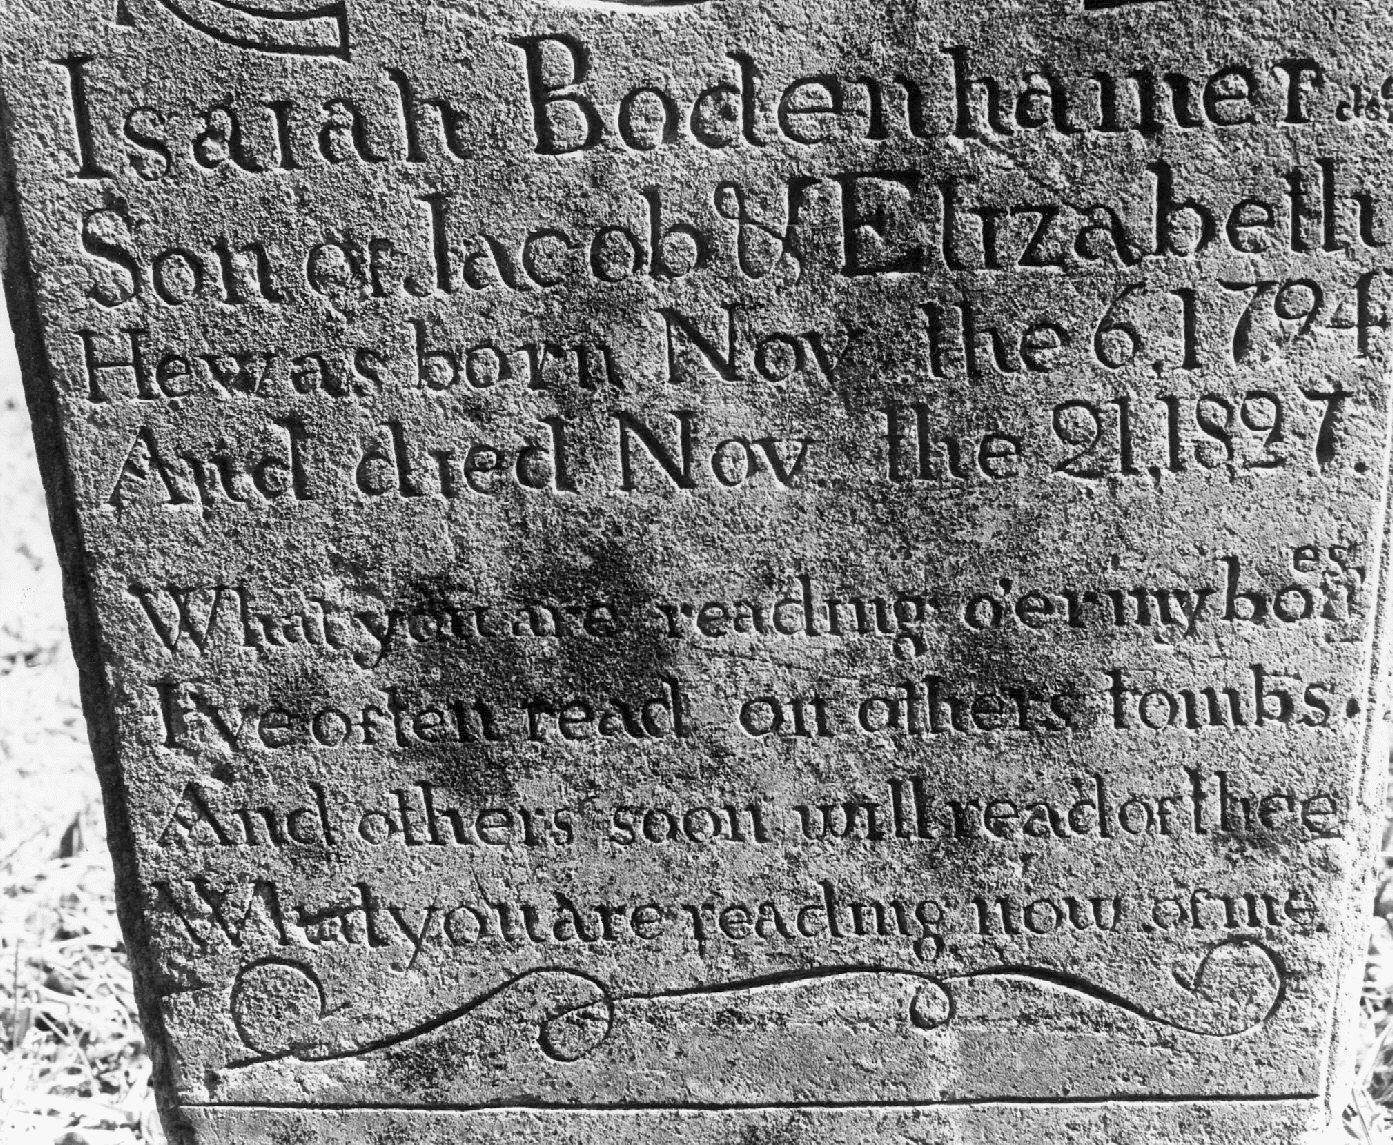 Isaiah Bodenhamer
Son of Jacob & Elizabeth
He was born Nov the 6,1794
And died Nov the 21,1827.
What you are reading o'er my bones
I've often read on others tombs.
And others soon will read of thee
What you are reading now of me.